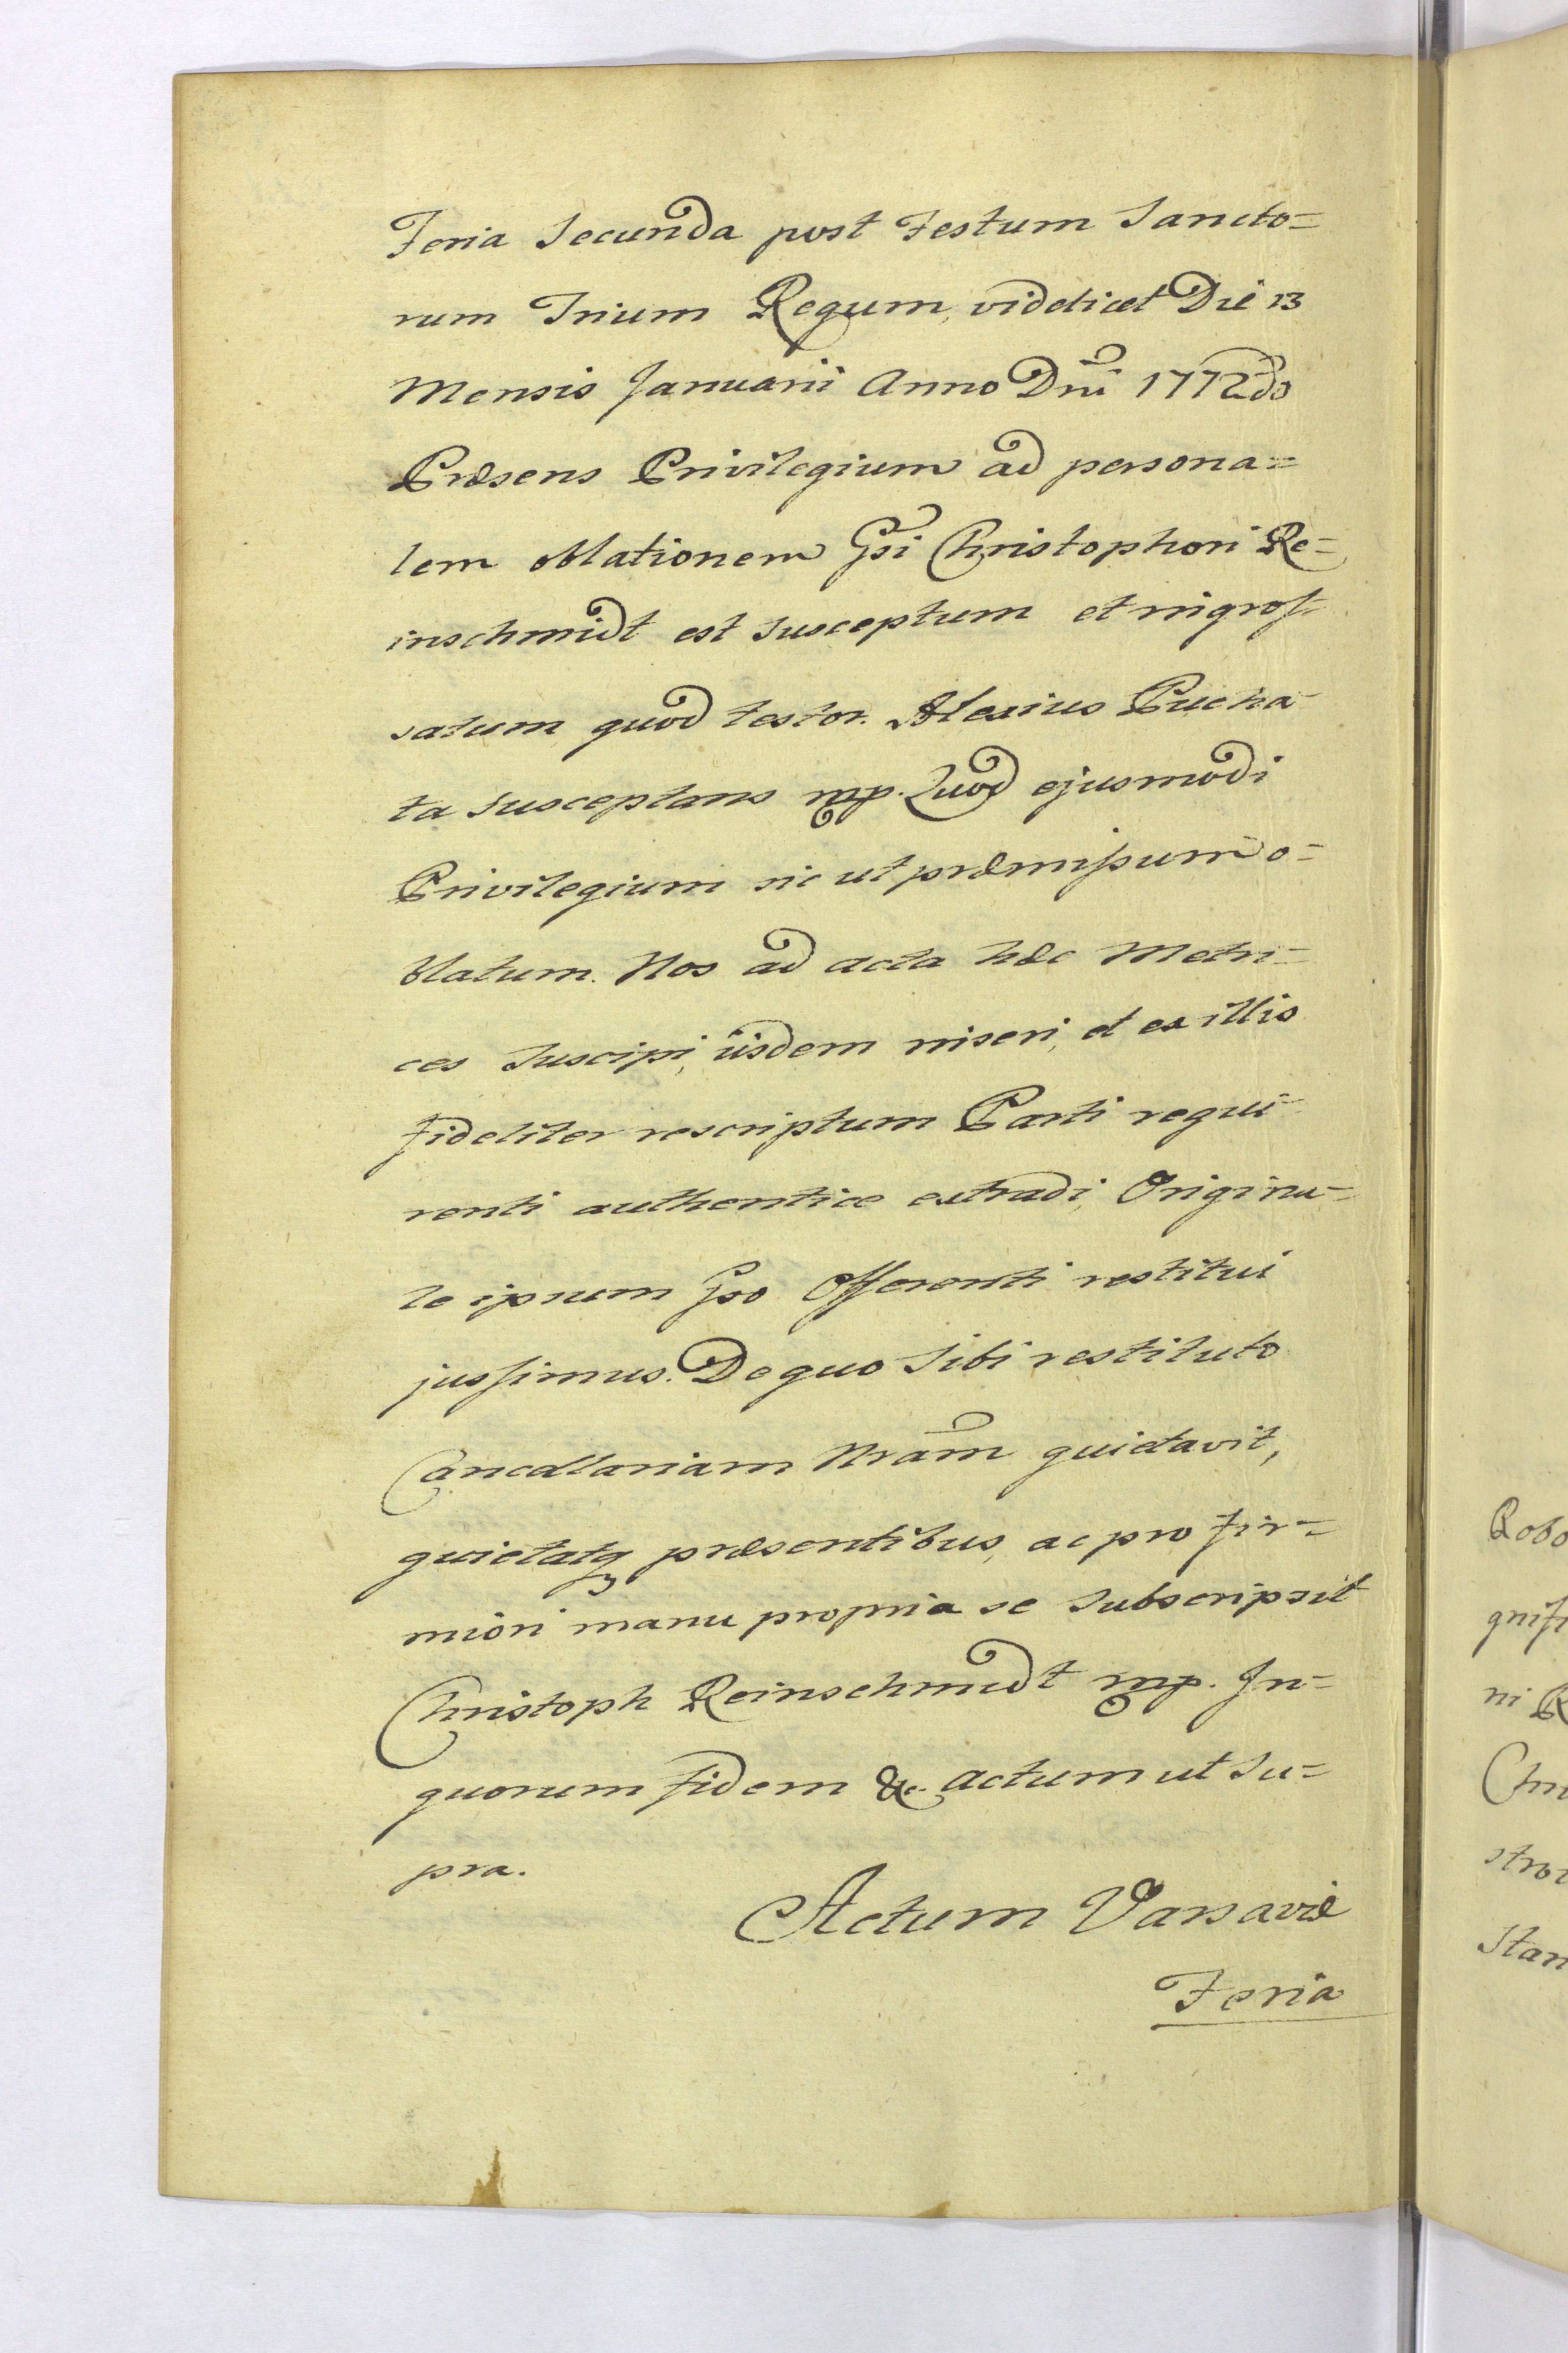 Feria Secunda post Festum Sancto=
rum Trium Regum, videlicet Die 13
Mensis Januarii Anno Dni 1772do
Præsens Privilegium ad persona=
lem oblationem Gsi Christophori Re=
inschmidt est susceptum et ingros-
satum, quod testor. Alexius Pucha-
ta Susceptans mp. Quod ejusmodi
Privilegium sic ut præmissum o=
blatum. Nos ad acta hæc Metri=
ces suscipi, iisdem inseri, et ex illis
fideliter rescriptum Parti requi-
renti authentice extradi, Origina=
le ipsum Gso Offerenti restitui
jussimus. De quo sibi restituto
Cancellariam Nram quietavit,
quietatq præsentibus, ac pro fir=
miori manu propria se subscripsit
Christoph Reinschmidt mp. In=
quorum fidem &c. actum ut Su=
pra.
Actum Varsaviæ
Feria
Robo
gnifi
ni R
Chri
Stan